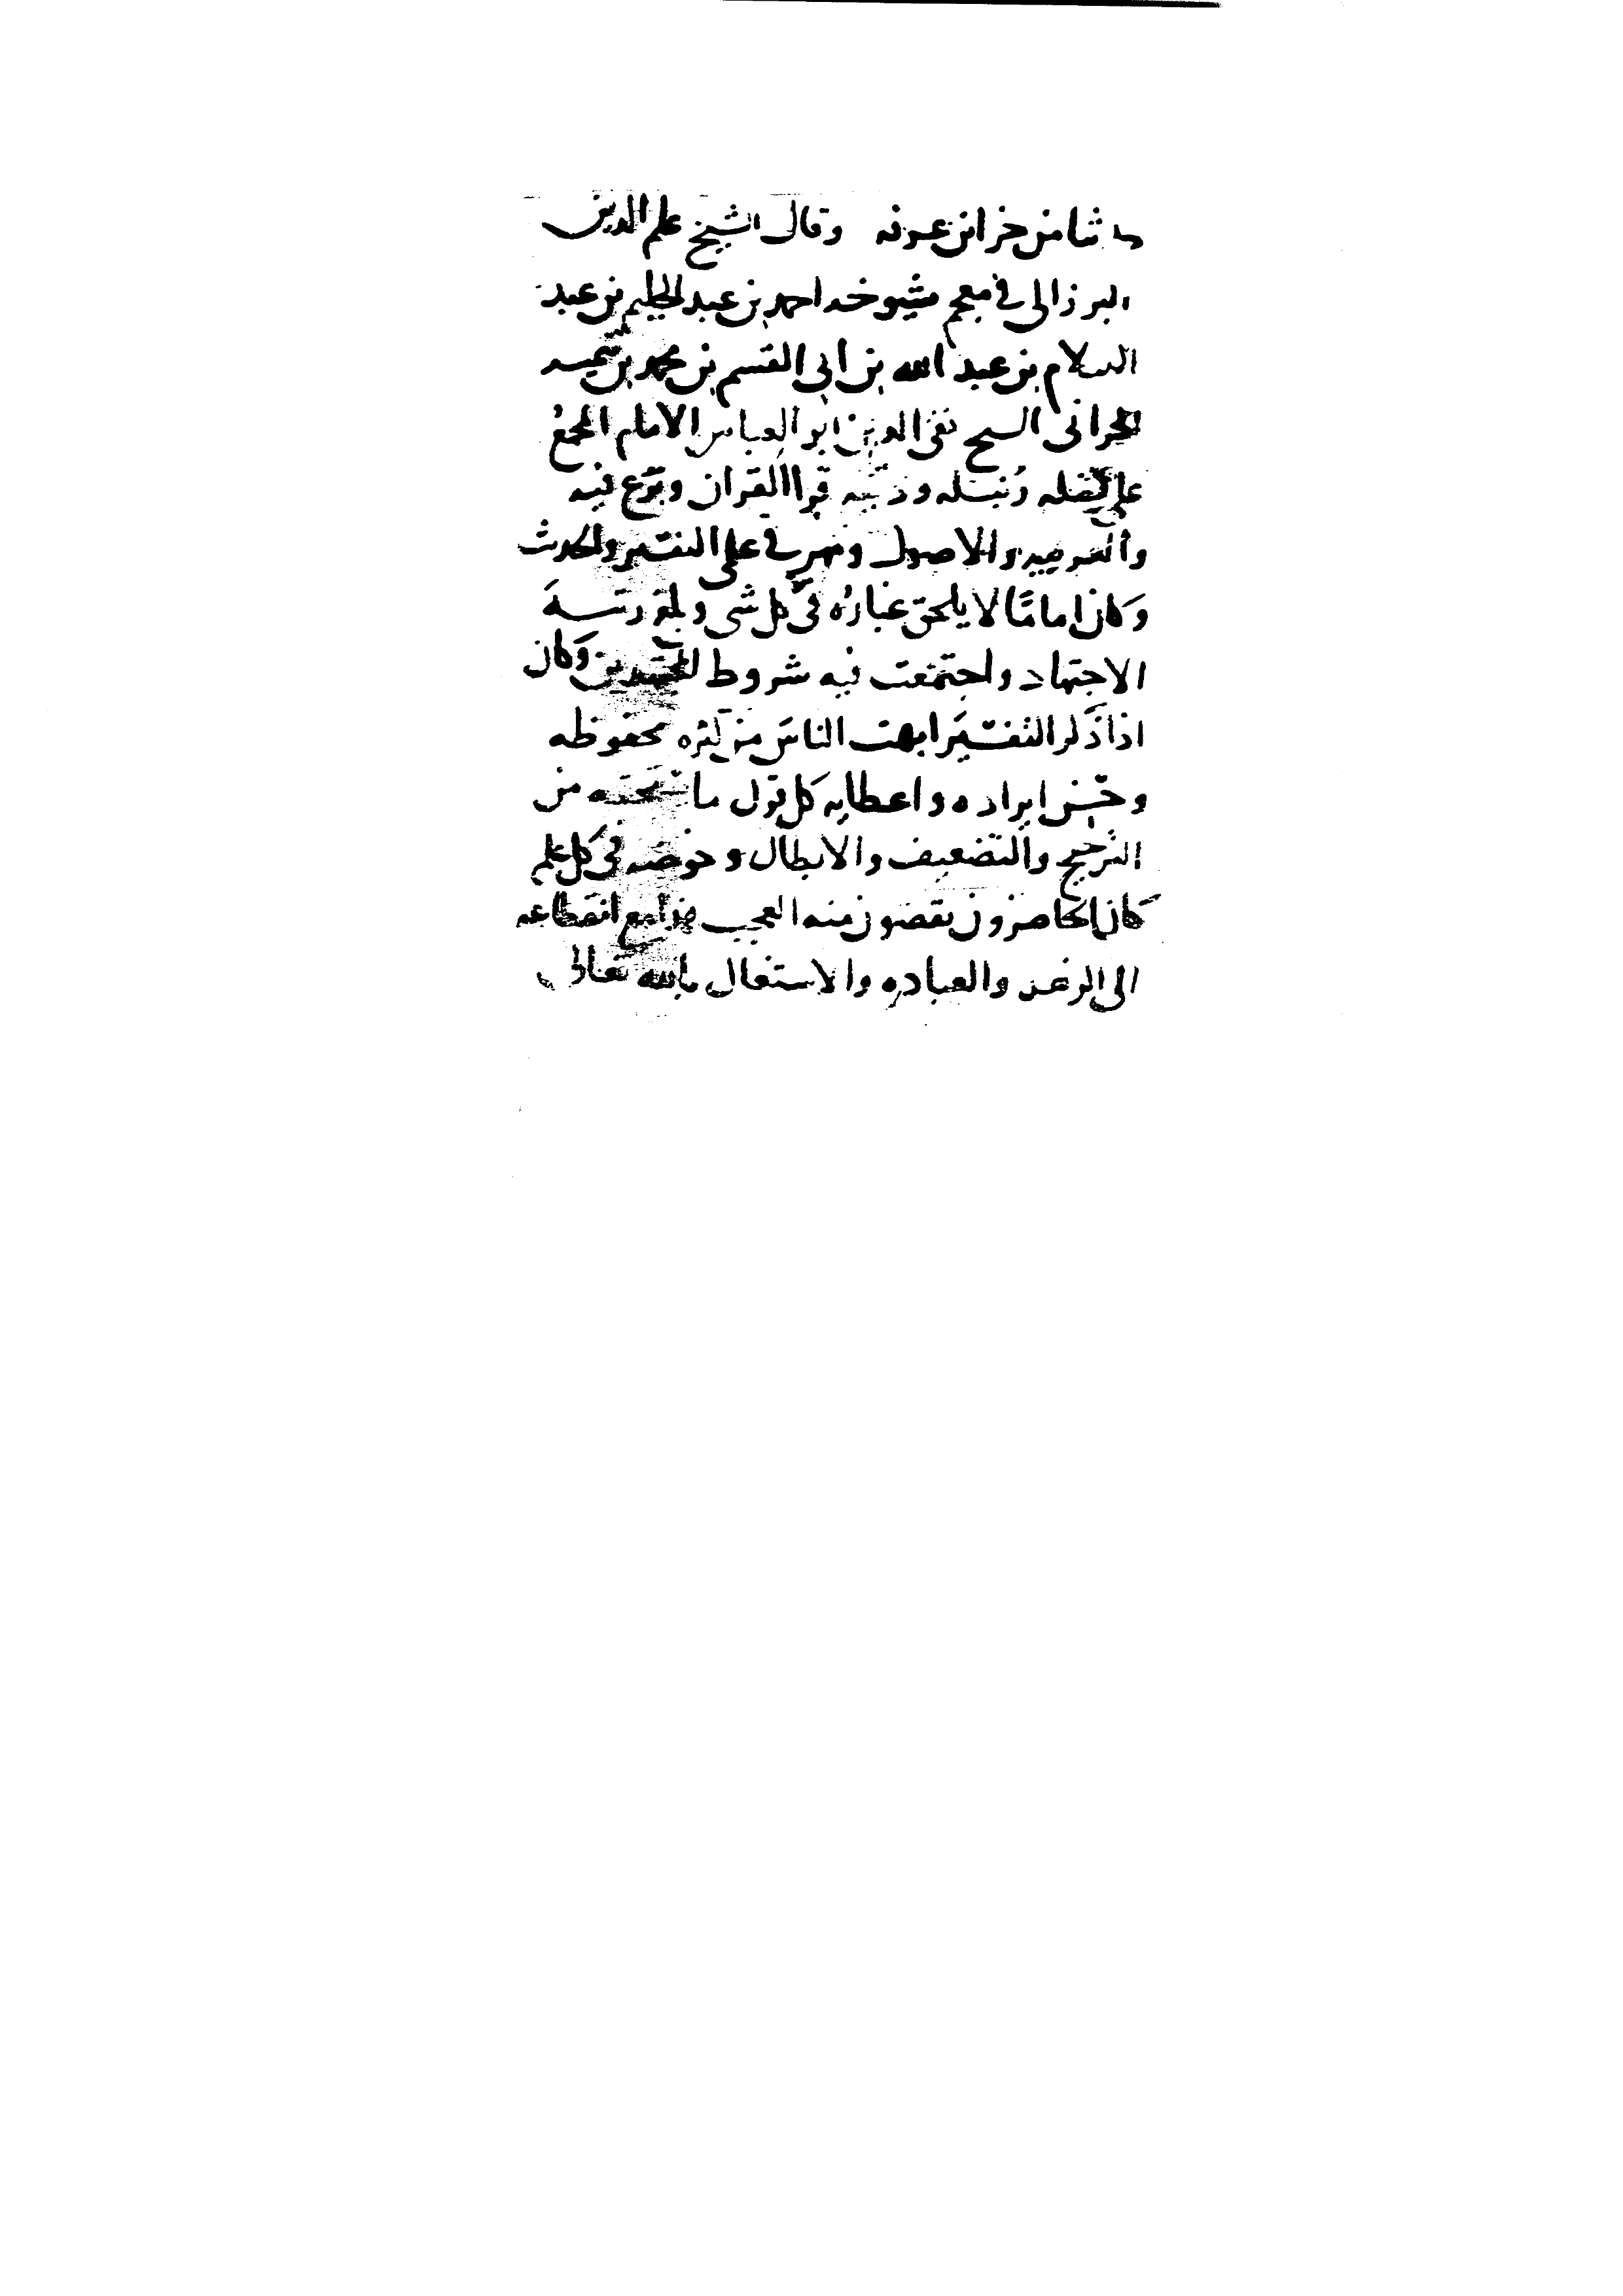 ثنا من جز ابن عرفه وقال الشيخ علم الدين
البرزالى فى معجم شيوخه احمد بن عبد الحليم بن عبد
السلام بن عبد الله بن ابى القسم بن محمد بن تيميه
الحرانى الشيخ تقى الدين ابو العباس الامام المجمع
على فضله ونبله ودينه قرا القران وبرع فيه
والعربيه والاصول ومهر فى علمى التفسير والحديث
وكان اماما لا يلحق غباره فى كل شى وبلغ رتبة
الاجتهاد واجتمعت فيه شروط المجتهدين وكان
اذا ذكر التفسير ابهت الناس من كثره محفوظه
وحسن ايراده واعطايه كل قول ما يستحقه من
الترجيح والتضعيف والابطال وخوضه فى كل علم
كان الحاضرون يقضون منه العجب هذا مع انقطاعه
الى الزهد والعباده والاشتغال بالله تعالى